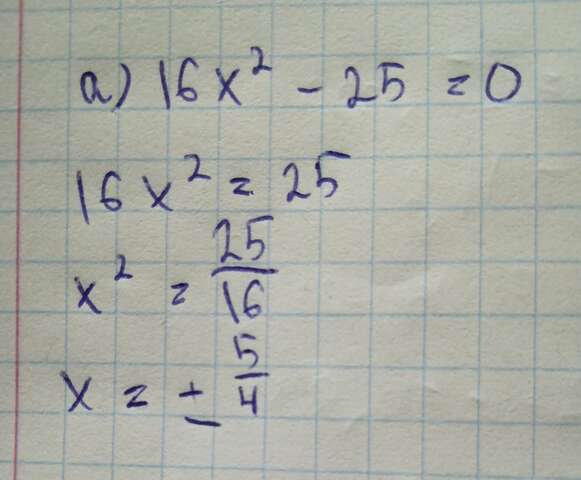 а) 16x² - 25 = 0
16x² = 25
x² = 25/16
x = ± 5/4